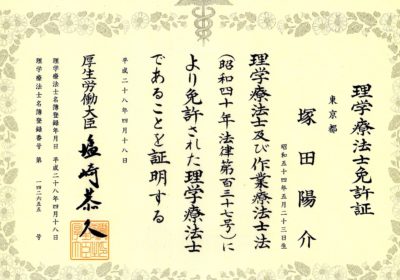 理学療法士免許証
東京都
塚田陽介
昭和五十四年五月二十三日生
理学療法士及び作業療法士法
(昭和四十年法律第百三十七号)に
より免許された理学療法士
であることを証明する
平成二十八年四月十八日
厚生労働大臣 塩崎恭久
理学療法士名簿登録年月日 平成二十八年四月十八日
理学療法士名簿登録番号 第 一四二六五五 号